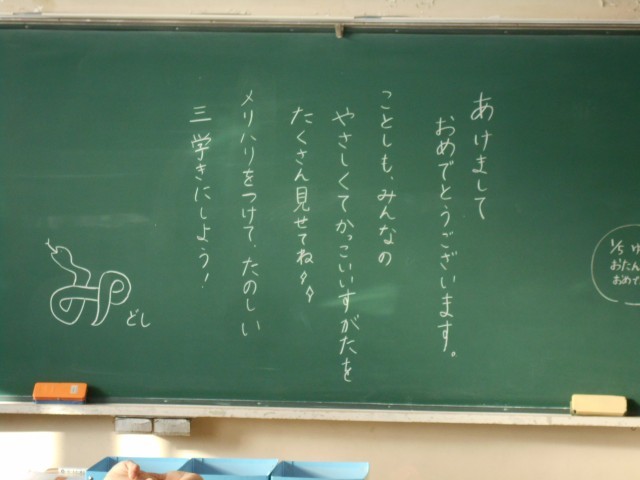 あけまして
おめでとうございます。
ことしも、みんなの
やさしくてかっこいいすがたを
たくさん見せてね
メリハリをつけて、たのしい
三学きにしよう!
どし
1/5 ゆ
おたん
おめで